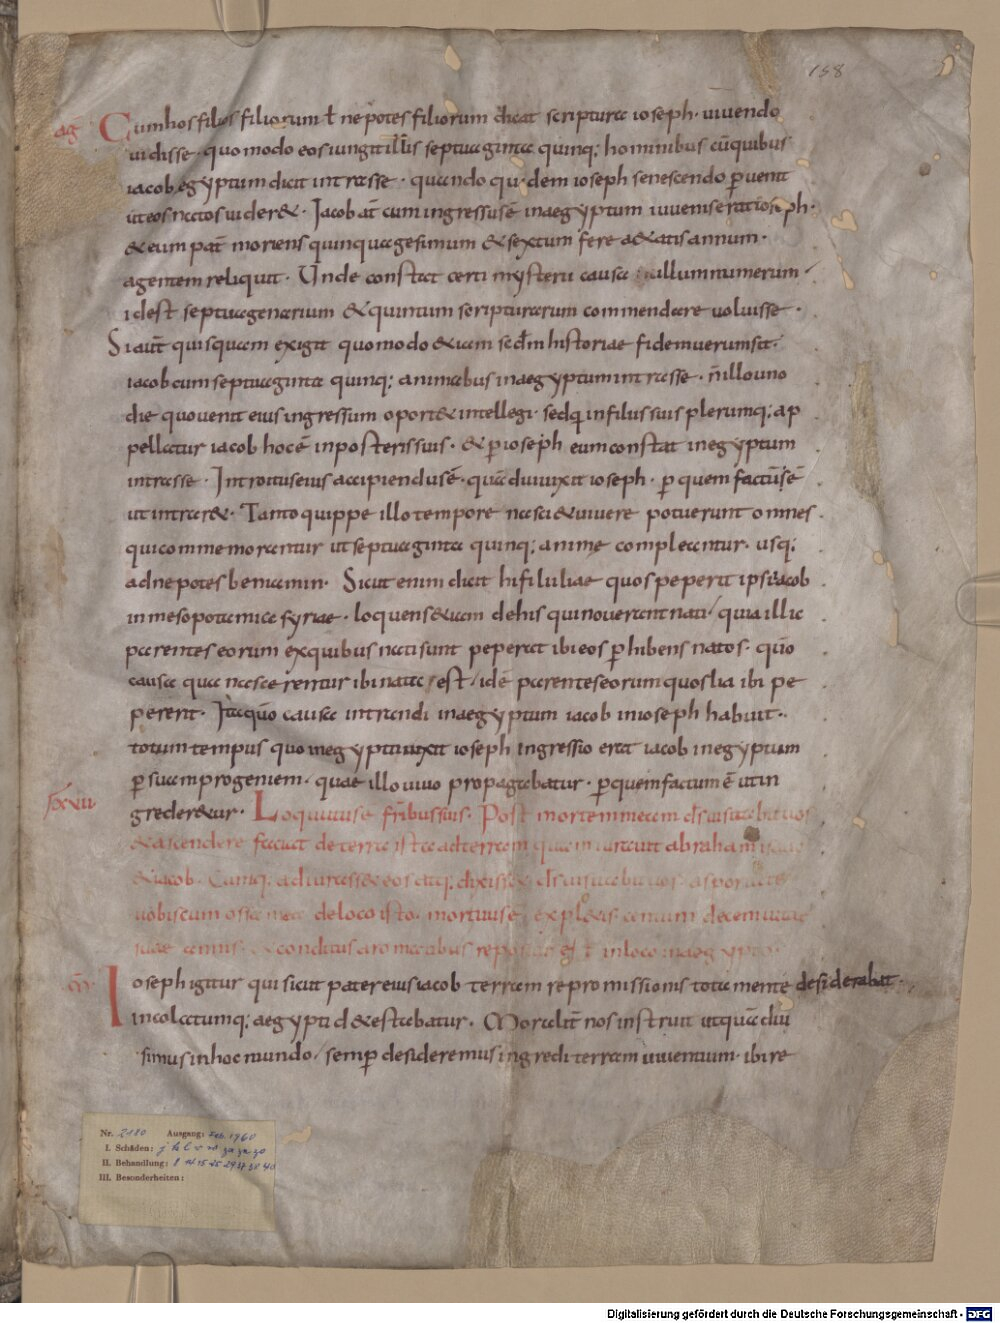 158
ag Cum hos filios filiorum ł nepotes filiorum dicat scriptura ioseph · uiuendo
uidisse · quomodo eos iungit illis septuaginta quinq; hominibus cū quibus
iacob egyptum dicit intrasse · quando quidem ioseph senescendo puenit
ut eos natos uider& · Iacob aū cum ingressus ē in aegyptum iuuenis erat ioseph ·
& eum pat̄ moriens quinquagesimum & sextum fere a&atis annum ·
agentem reliquit · Unde constat certi mysterii causa nullum numerum
id est septuagenarium & quintum scripturarum commendare uoluisse ·
Si aūt quisquam exigit quomodo &iam scdm historiae fidem uerum sit ·
iacob cum septuaginta quinq; animabus in aegyptum intrasse · ñ illo uno
die quo uenit eius ingressum oport& intellegi · sed q̄ in filiis suis plerumq; ap
pellatur iacob hoc ē in posteris suis · & p ioseph eum constat in egyptum
intrasse · Introitus eius accipiendus ē · quādiu uixit ioseph · p quem factū sē
ut intrar& · Tanto quippe illo tempore nasci & uiuere potuerunt omnes
qui commemorantur ut septuaginta quinq; anime compleantur · usq;
ad nepotes beniamin · Sicut enim dicit hi filii liae quos peperit ipsi iacob
in mesopotamia syriae · loquens &iam de his qui n̄ erant nati / quia illic
parentes eorum ex quibus nati sunt peperat ibi eos phibens natos · quō
causa qua nascerentur ibi nata est / idē parentes eorum quos lia ibi pe
perent · Ita quō causa intrandi in aegyptum iacob in ioseph habuit ·
totum tempus quo in egypto uixit ioseph ingressio erat iacob in egyptum
p suam progeniem · quae illo uiuo propagabatur · p quem factum ē ut in
grederetur · Loquutus ē fr̄ibus suis · Post mortem meam d̄s uisitabit uos
& ascendere faciat de terra ista ad terram quam iurauit abraham isaac
& iacob · Cumq; adiurass& eos atq; dixiss& d̄s uisitabit uos asportate
uobiscum ossa mea de loco isto · mortuus ē expl&is centum decem uitae
suae annis · & conditus aromatibus repositus est in loco in aegypto ·
Ioseph igitur qui sicut pater eius iacob terram repromissionis tota mente desiderabat ·
incolatumq; aegypti d&estabatur · Moralit̄ nos instruit ut quādiu
simus in hoc mundo / semp desideremus ingredi terram uiuentium · ibi re
Nr. 2180 Ausgang: Feb. 1960
I. Schäden:
II. Behandlung:
III. Besonderheiten:
Digitalisierung gefördert durch die Deutsche Forschungsgemeinschaft - DFG